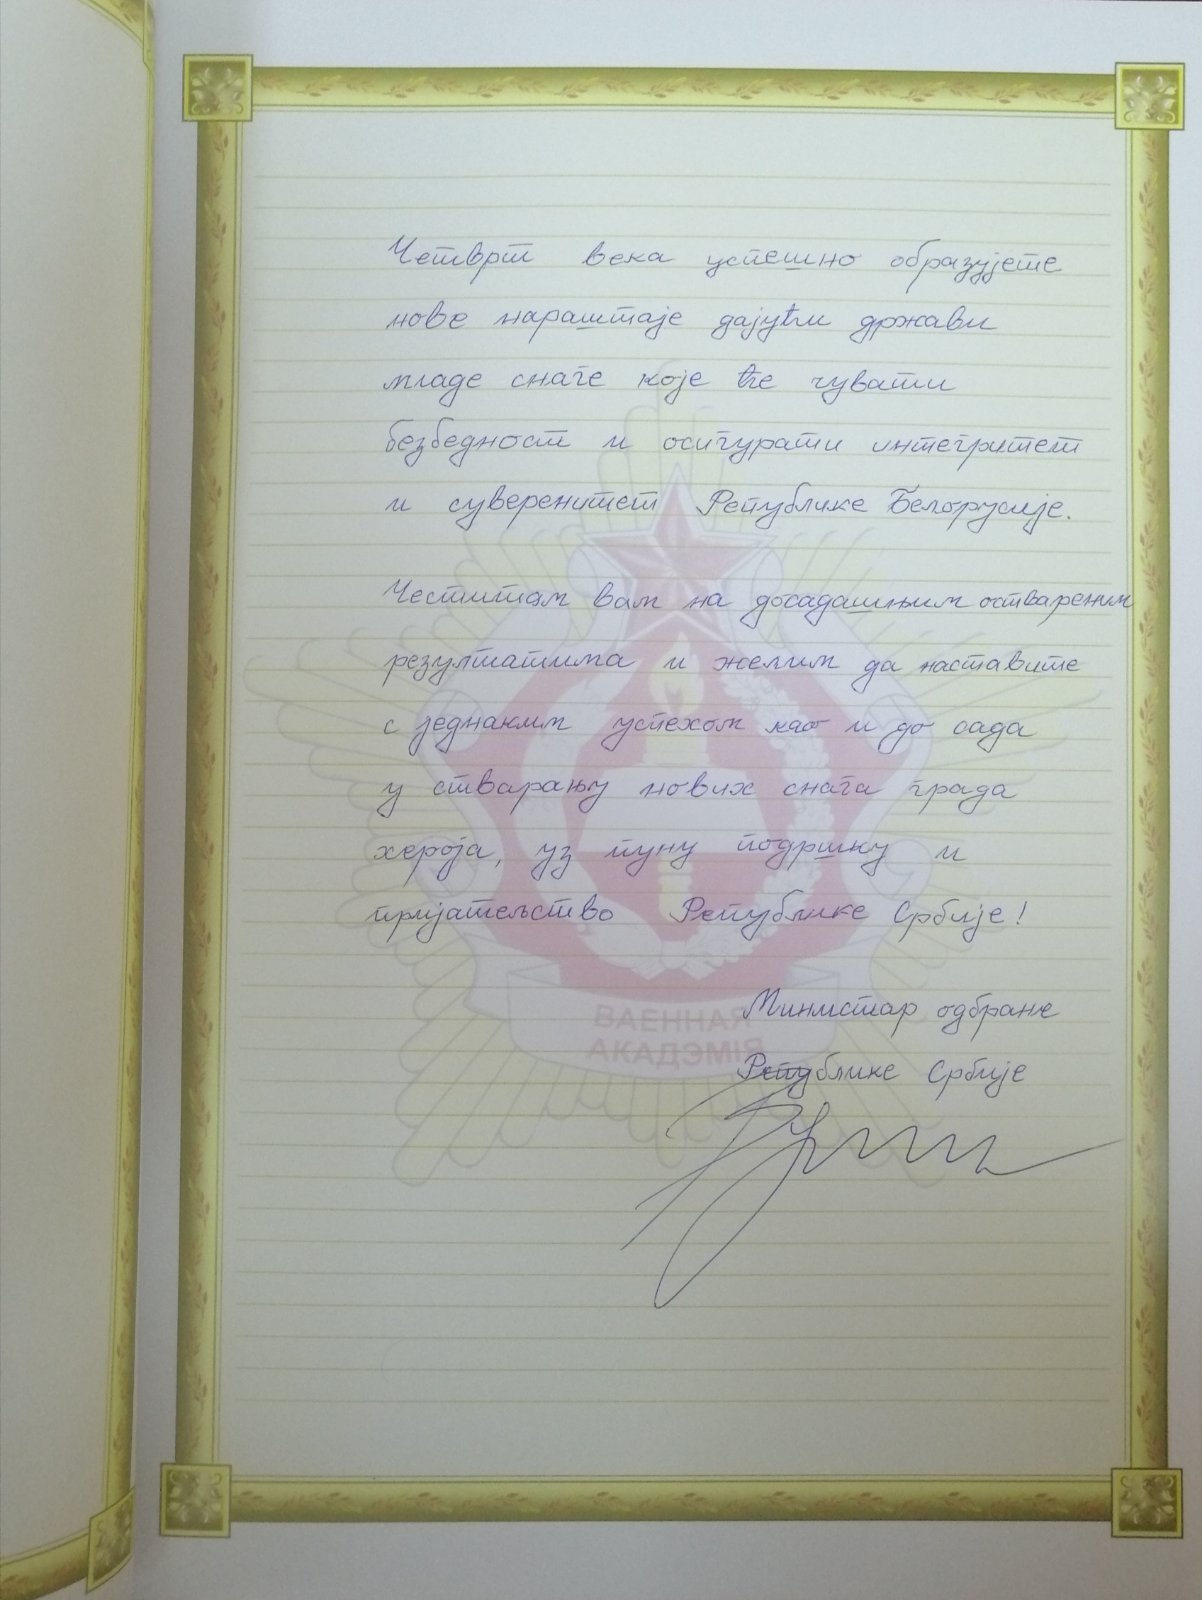 Четврт века успешно образујете
нове нараштаје дајући држави
младе снаге које ће чувати
безбедност и осигурати интегритет
и суверенитет Републике Белорусије.
Честитам вам на досадашњим оствареним
резултатима и желим да наставите
с једнаким успехом као и до сада
у стварању нових снага града
хероја, уз пуну подршку и
пријатељство Републике Србије!
ВАЕННАЯ
АКАДЭМІЯ
Министар одбране
Републике Србије